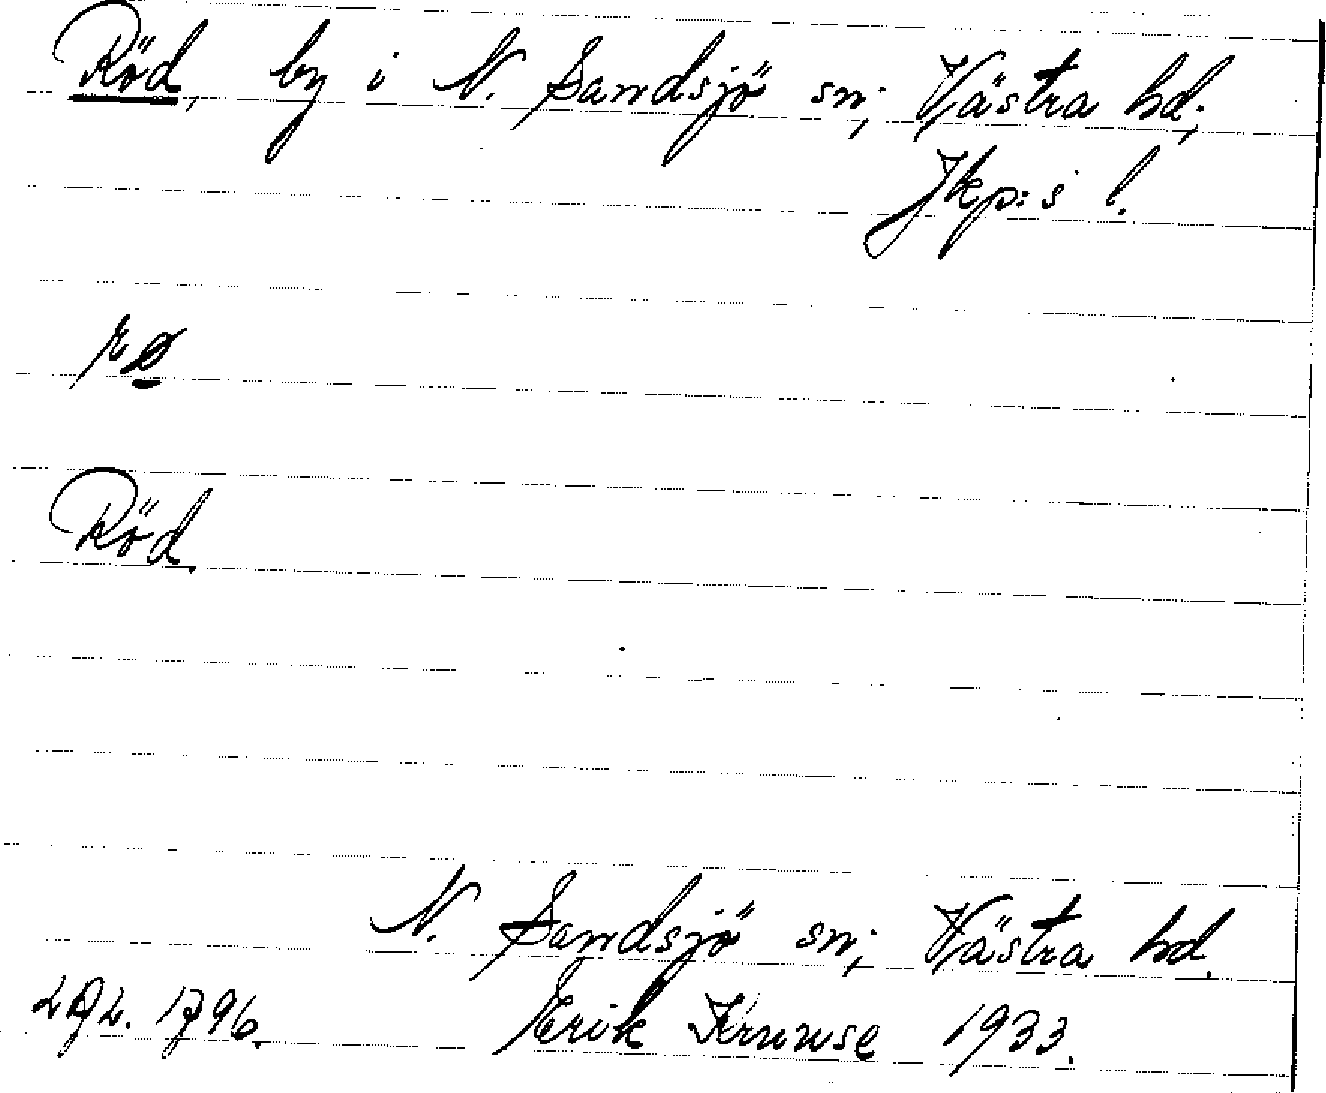 Röd, by i N. Sandsjö sn; Västra hd;
Jkp:s l.
rø
Röd.
N. Sandsjö sn; Västra hd.
1796. Erik Kruuse 1933.